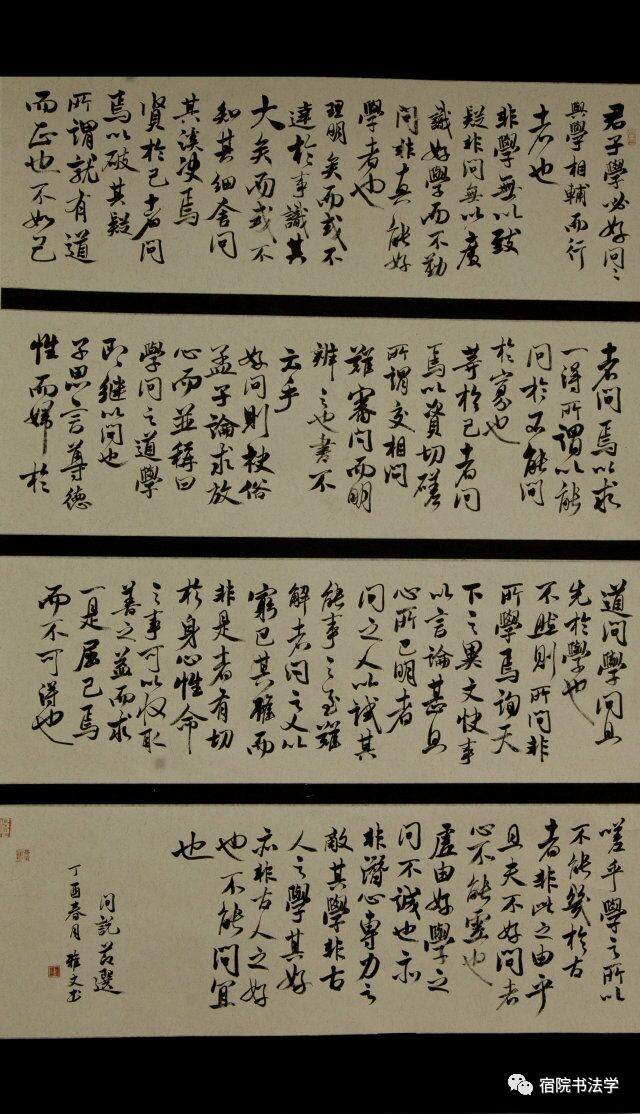 君子學必好問〻
與學相輔而行
者也
非學無以致
疑非問無以廣
識好學而不勤
問非真能好
學者也
理明矣而或不
達於事識其
大矣而或不
知其細舍問
其溪決焉
賢於己者問
焉以破其疑
所謂就有道
而正也不如己
者問焉以求
一得所謂以能
問於不能問
於寡也
等於己者問
焉以資切磋
所謂交相問
難審問而明
辨之也書不
云乎
好問則俗
孟子論求放
心而並稱曰
學問之道學
即繼以問也
子思言尊德
性而歸於
道問學問且
先於學也
不然則所問非
所學焉詢天
下之異文快事
以言論甚且
心所已明者
問之人以試其
能事之至難
解者問之人以
窮已其而
非是者有切
於身心性命
之事可以收取
善之益而求
一是屈己焉
而不可得也
嗟乎學之所以
不能幾於古
者非此之由乎
且夫不好問者
心不能虛也
虛由好學之
問不誠也亦
非潛心專力之
敵其學非古
人之學其好
亦非古人之好
也不能問宜
也
問說節選
丁酉春月文書
宿院书法学